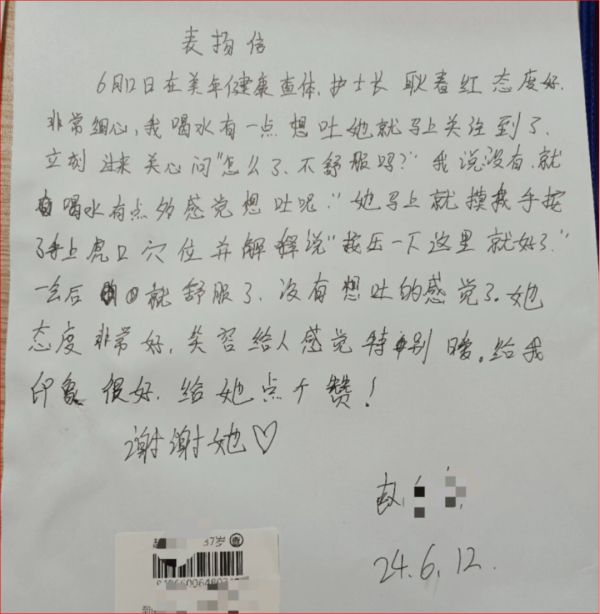 表扬信
6月12日在美年健康查体,护士长 耿春红 态度好.
非常细心,我喝水有一点想吐她就马上关注到了.
立刻过来关心问"怎么了,不舒服吗?"我说没有,就
喝水有点多感觉想吐呢."她马上就摸我手按
了手上虎口穴位并解释说"按压一下这里就好了."
一会后就舒服了,没有想吐的感觉了。她
态度非常好,笑容给人感觉特别暖。给我
印象很好,给她点个赞!
谢谢她♡
24.6.12.
37岁